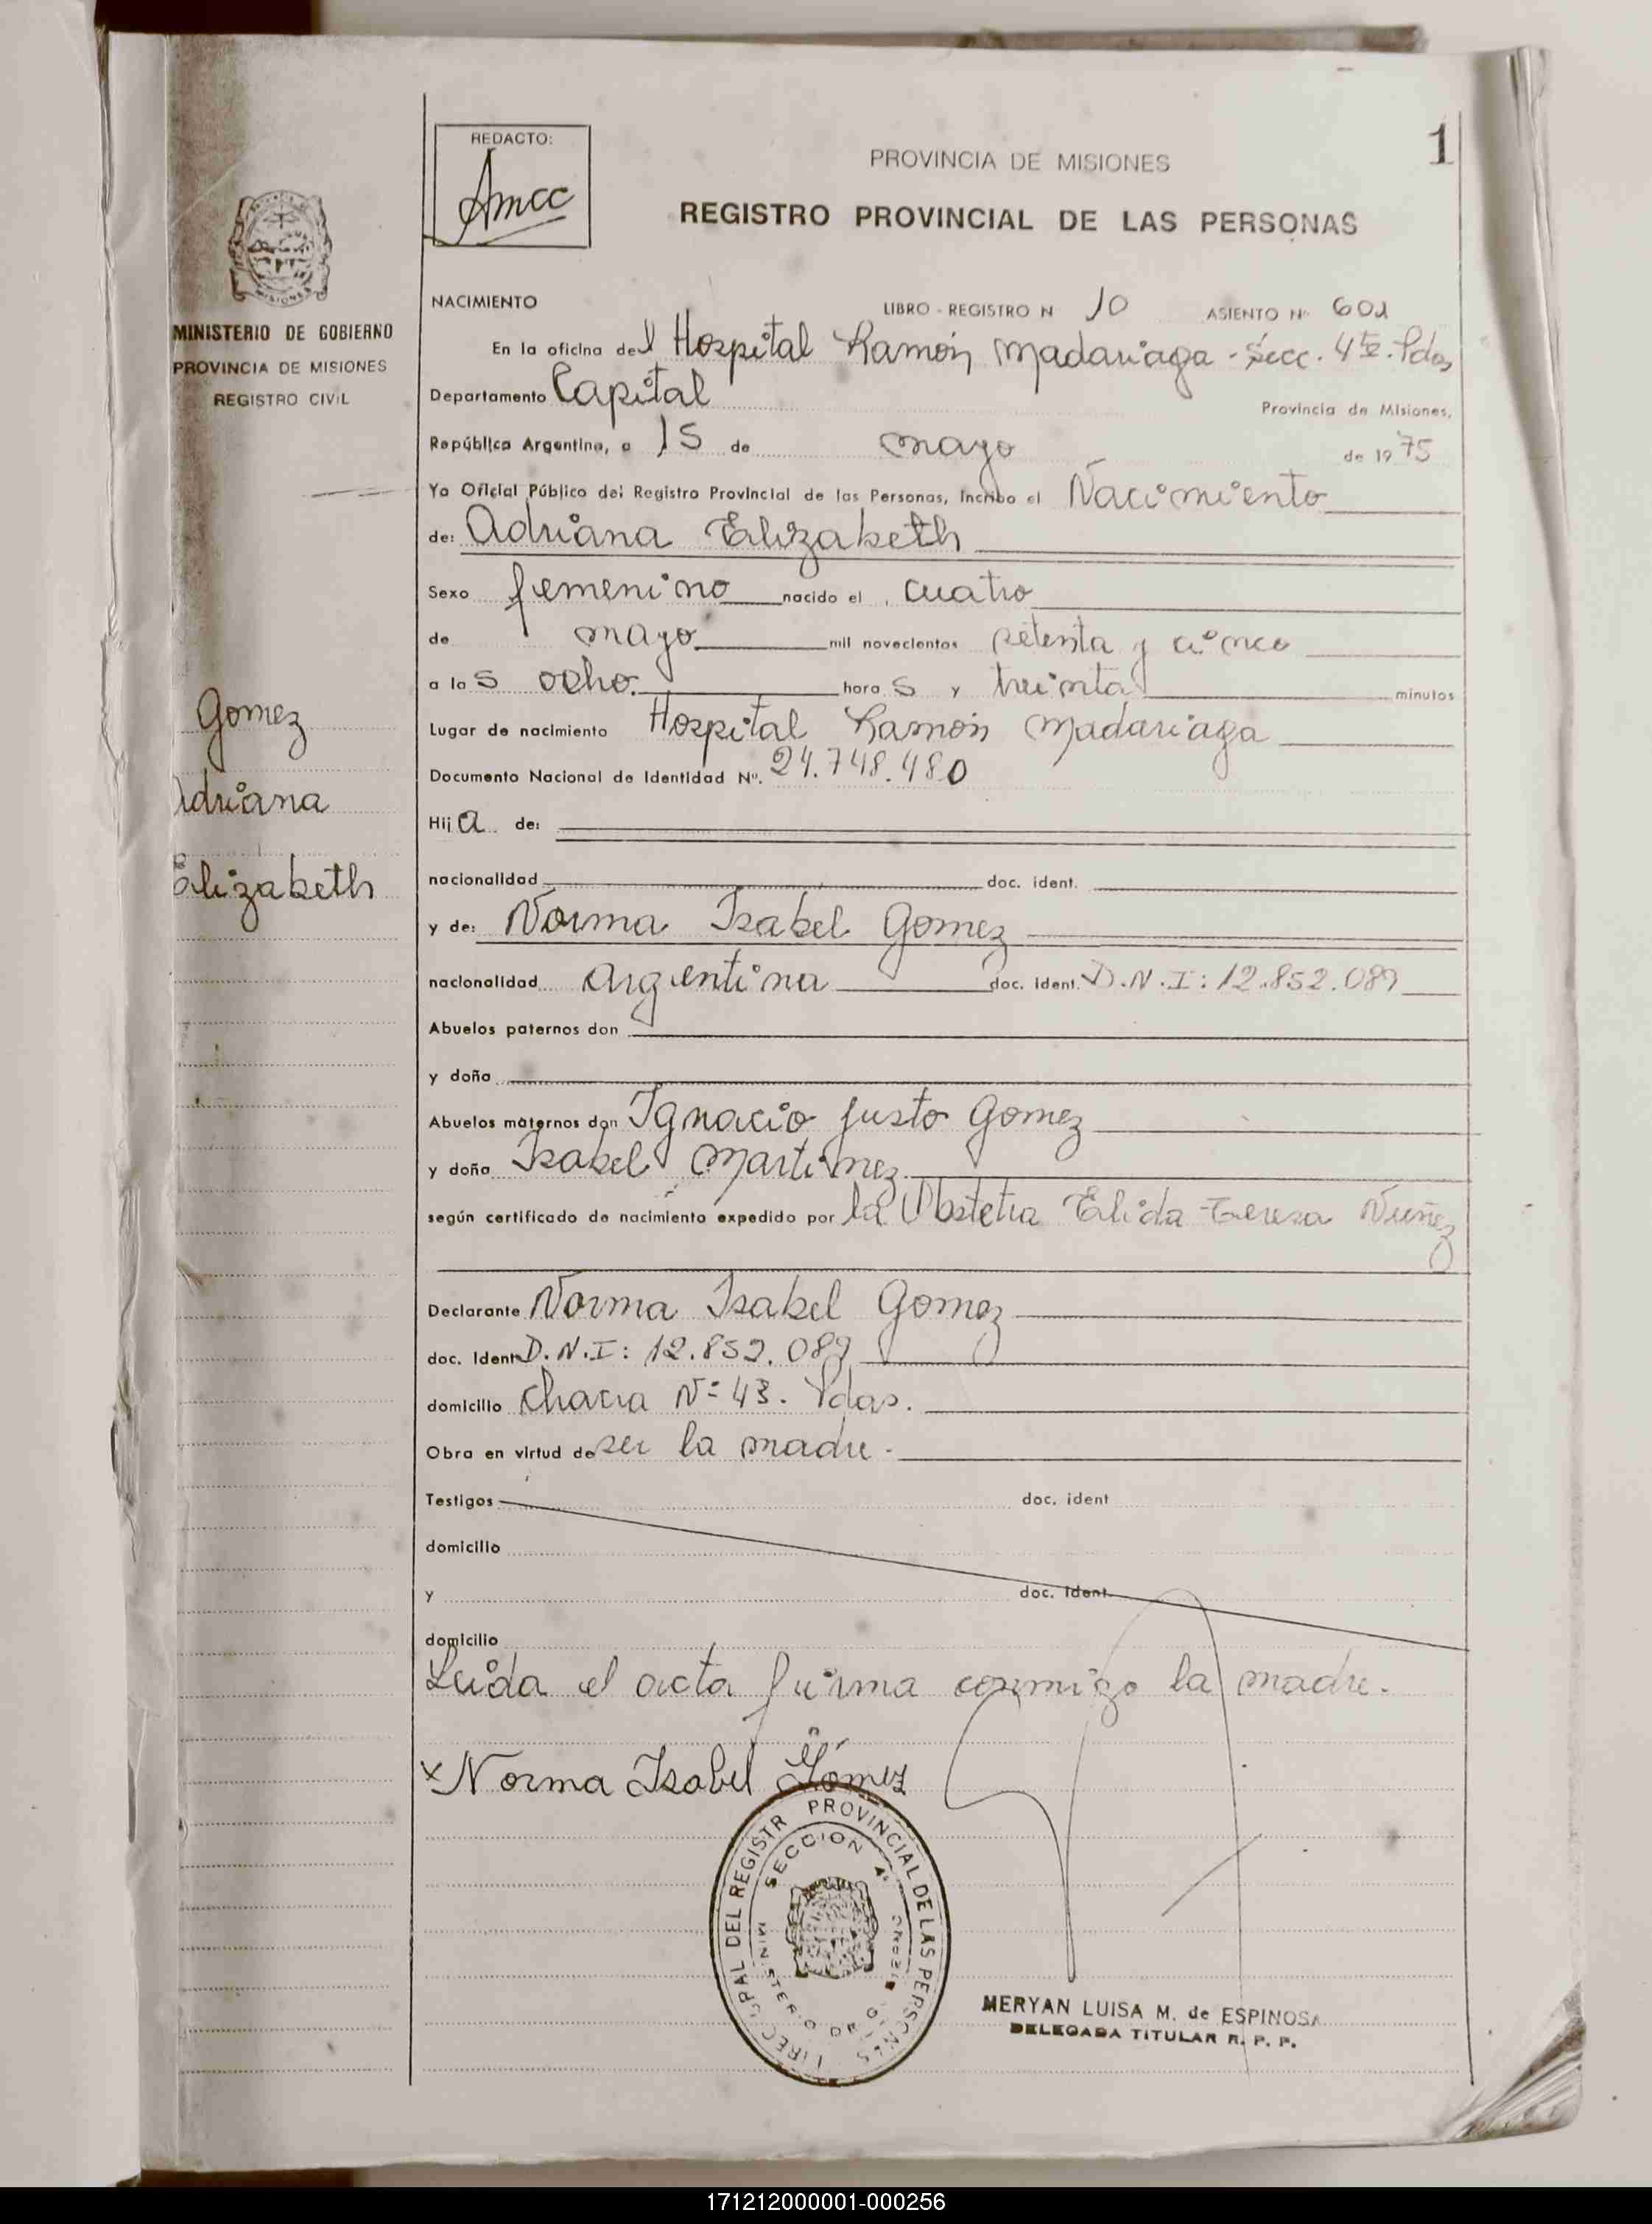 REDACTO:
Amcc
PROVINCIA DE MISIONES
1
REGISTRO PROVINCIAL DE LAS PERSONAS
MINISTERIO DE GOBIERNO
PROVINCIA DE MISIONES
REGISTRO CIVIL
NACIMIENTO LIBRO - REGISTRO N 10 ASIENTO Nº 601
En la oficina del Hospital Ramón Madariaga - Secc. 4ta. Pdas
Departamento Capital Provincia de Misiones,
República Argentina, a 15 de mayo de 1975
Yo Oficial Público del Registro Provincial de las Personas, incribo el Nacimiento
de: Adriana Elizabeth
Sexo femenino nacido el cuatro
de mayo mil novecientos setenta y cinco
a las ocho. horas y treinta minutos
Lugar de nacimiento Hospital Ramón Madariaga
Documento Nacional de Identidad Nº. 24.748.480
Hija de:
nacionalidad doc. ident.
y de: Norma Isabel Gomez
nacionalidad Argentina doc. ident. D.N.I: 12.852.089
Abuelos paternos don
y doña
Abuelos maternos don Ignacio Justo Gomez
y doña Isabel Martinez
según certificado de nacimiento expedido por la Obstetra Elida Teresa Nuñez
Declarante Norma Isabel Gomez
doc. Ident D.N.I: 12.852.089
domicilio Chacra Nº 43. Pdas.
Obra en virtud de ser la madre.
Testigos doc. ident
domicilio
y doc. ident
domicilio
Leida el acta firma conmigo la madre.
x Norma Isabel Gómez
Gomez
Adriana
Elizabeth
PROVINCIAL DE LAS PERSONAS
SECCION 4ª
MINISTERIO DE
MERYAN LUISA M. de ESPINOSA
DELEGADA TITULAR R. P. P.
171212000001-000256